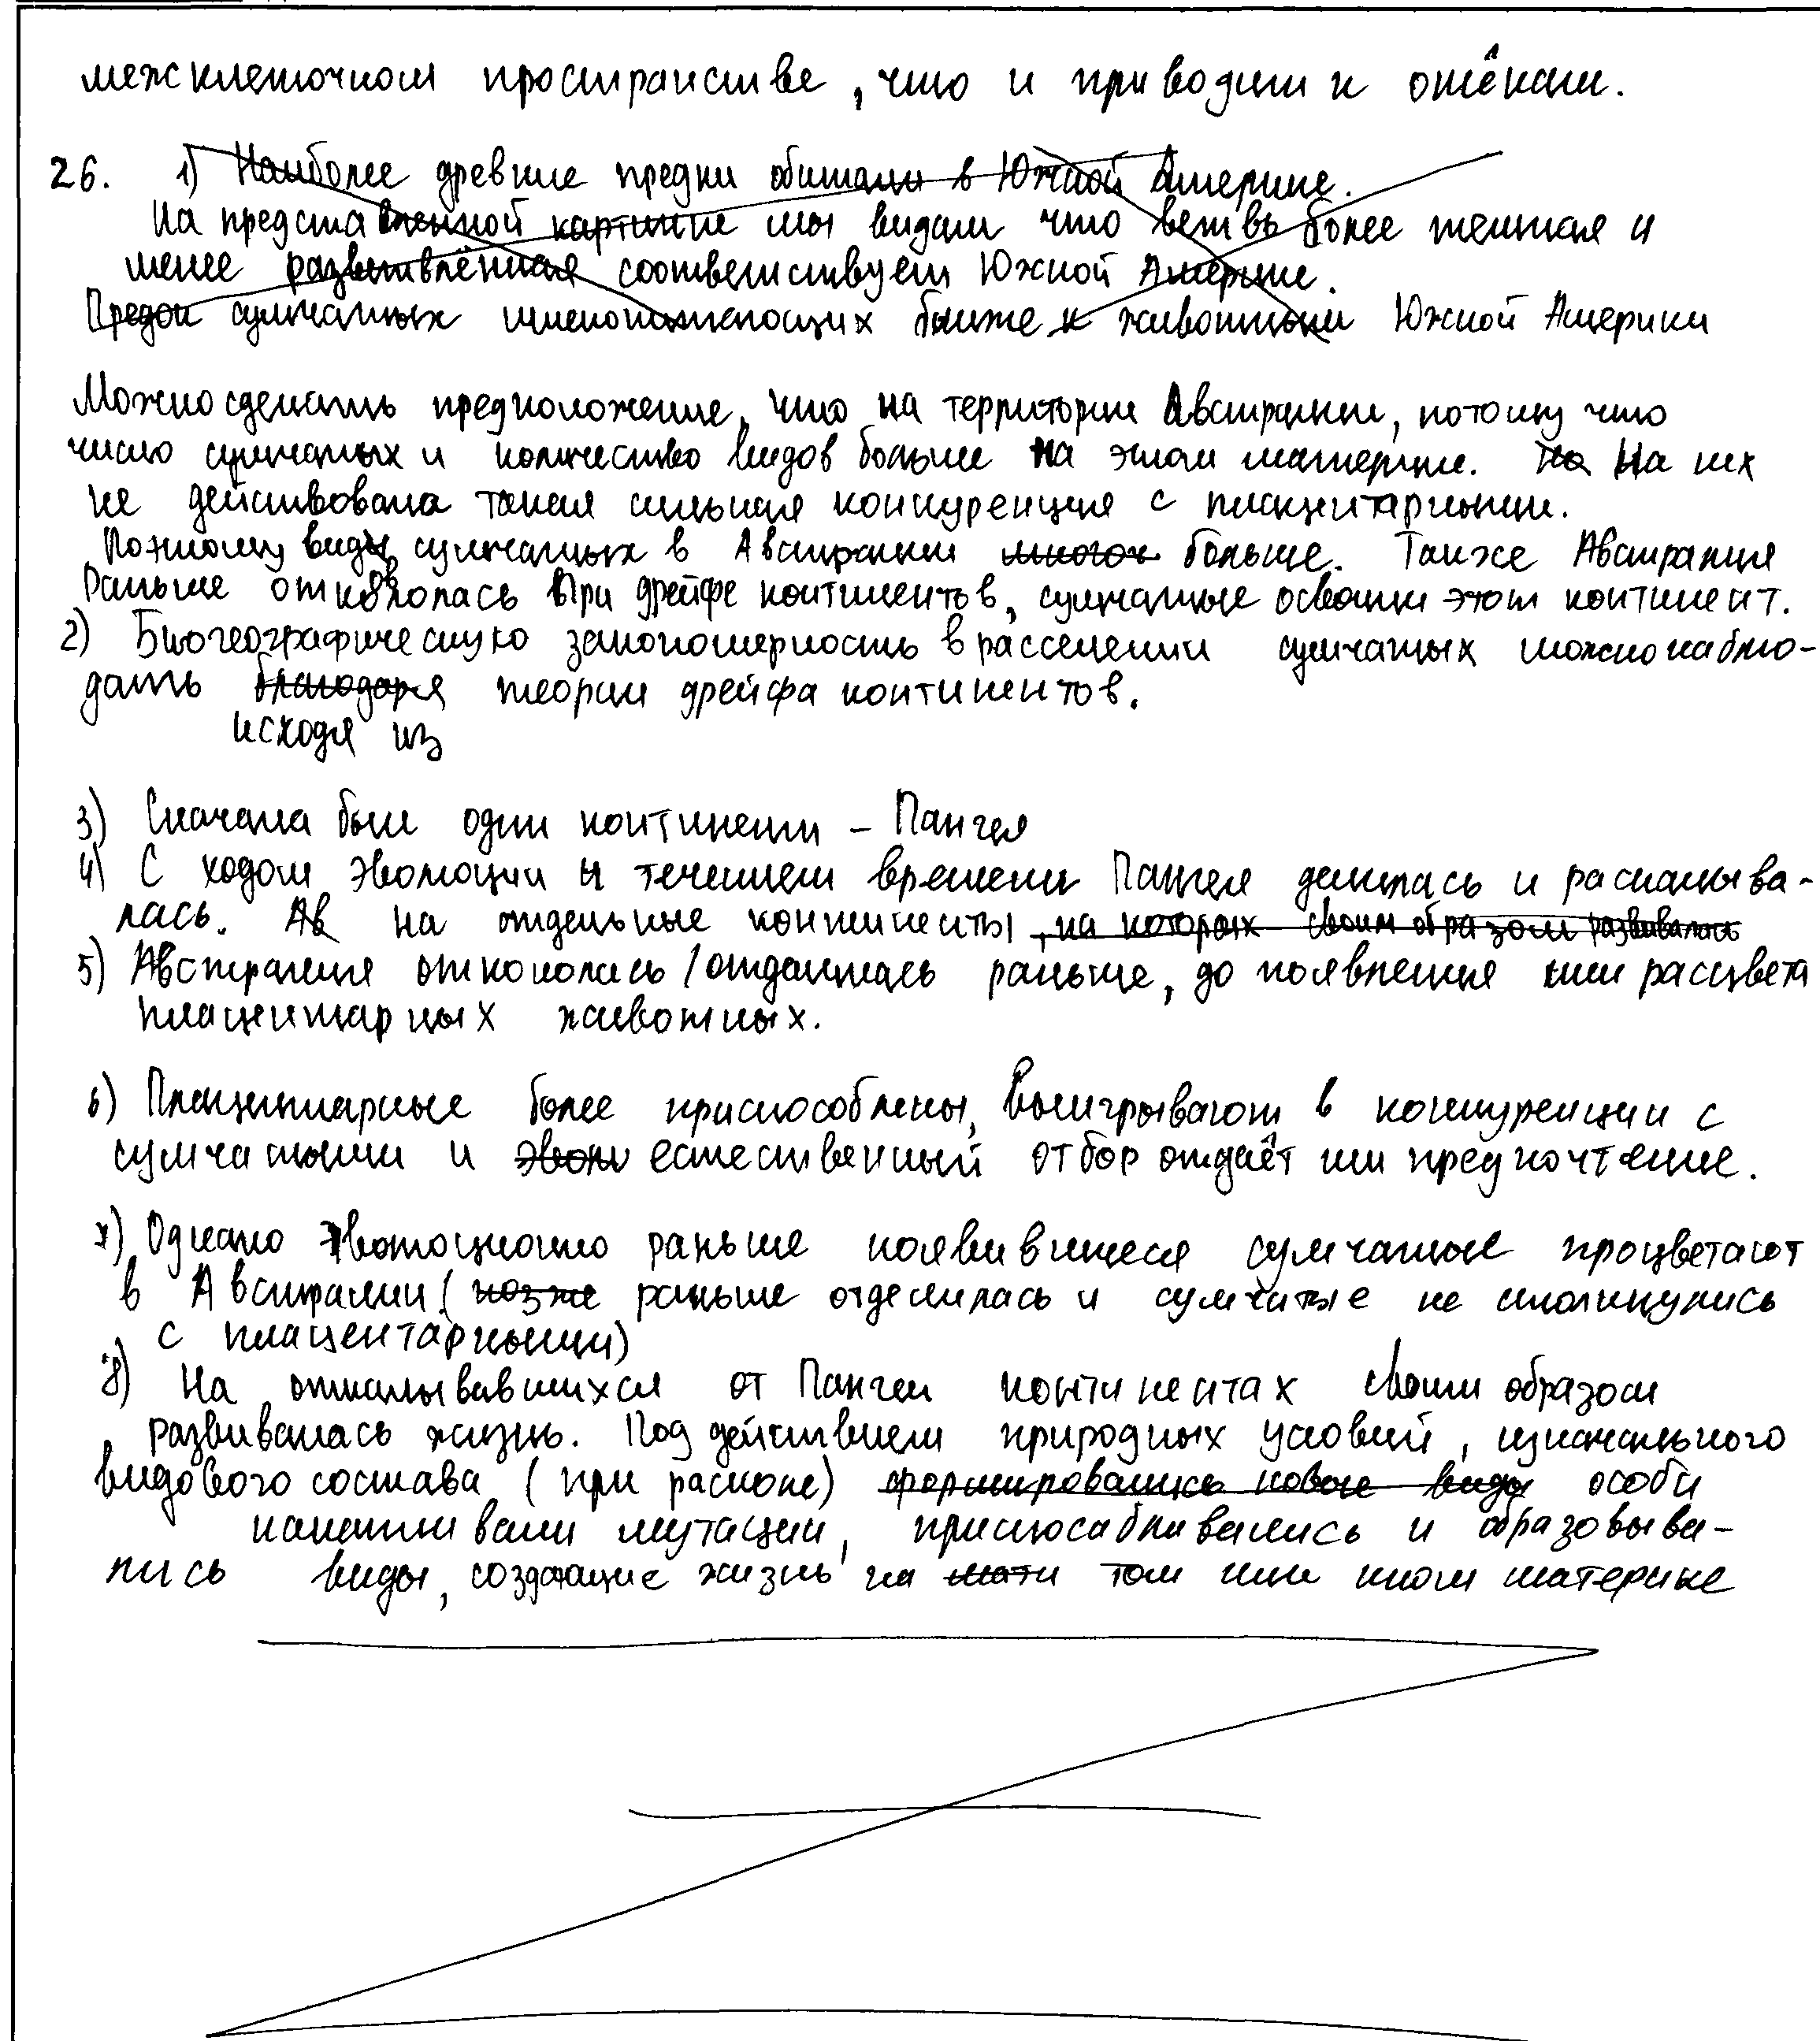 межклеточном пространстве, что и приводит к отёкам.
26. 1) Наиболее древние предки обитали в Южной Америке.
На представленной картинке мы видим что ветвь более тёмная и
менее разветвлённая соответствует Южной Америке.
Предок сумчатых млекопитающих ближе к животным Южной Америки
Можно сделать предположение, что на территории Австралии, потому что
число сумчатых и количество видов больше на этом материке. На них
не действовала такая сильная конкуренция с плацентарными.
Поэтому виды сумчатых в Австралии много больше. Также Австралия
раньше откололась при дрейфе континентов, сумчатые освоили этот континент.
2) Биогеографическую закономерность в расселении сумчатых можно наблю-
дать благодаря теории дрейфа континентов.
исходя из
3) Сначала был один континент – Пангея
4) С ходом эволюции и течением времени Пангея делилась и раскалыва-
лась. Ав на отдельные континенты, на которых своим образом развивалась
5) Австралия откололась/отделилась раньше, до появления или расцвета
плацентарных животных.
6) Плацентарные более приспособлены, выигрывают в конкуренции с
сумчатыми и эвол естественный отбор отдаёт им предпочтение.
7) Однако эволюционно раньше появившиеся сумчатые процветают
в Австралии (позже раньше отделилась и сумчатые не столкнулись
с плацентарными)
8) На откалывавшихся от Пангеи континентах своим образом
развивалась жизнь. Под действием природных условий, изначального
видового состава (при расколе) формировались новые виды особи
накапливали мутации, приспосабливались и образовыва-
лись виды, создающие жизнь на мати том или ином материке